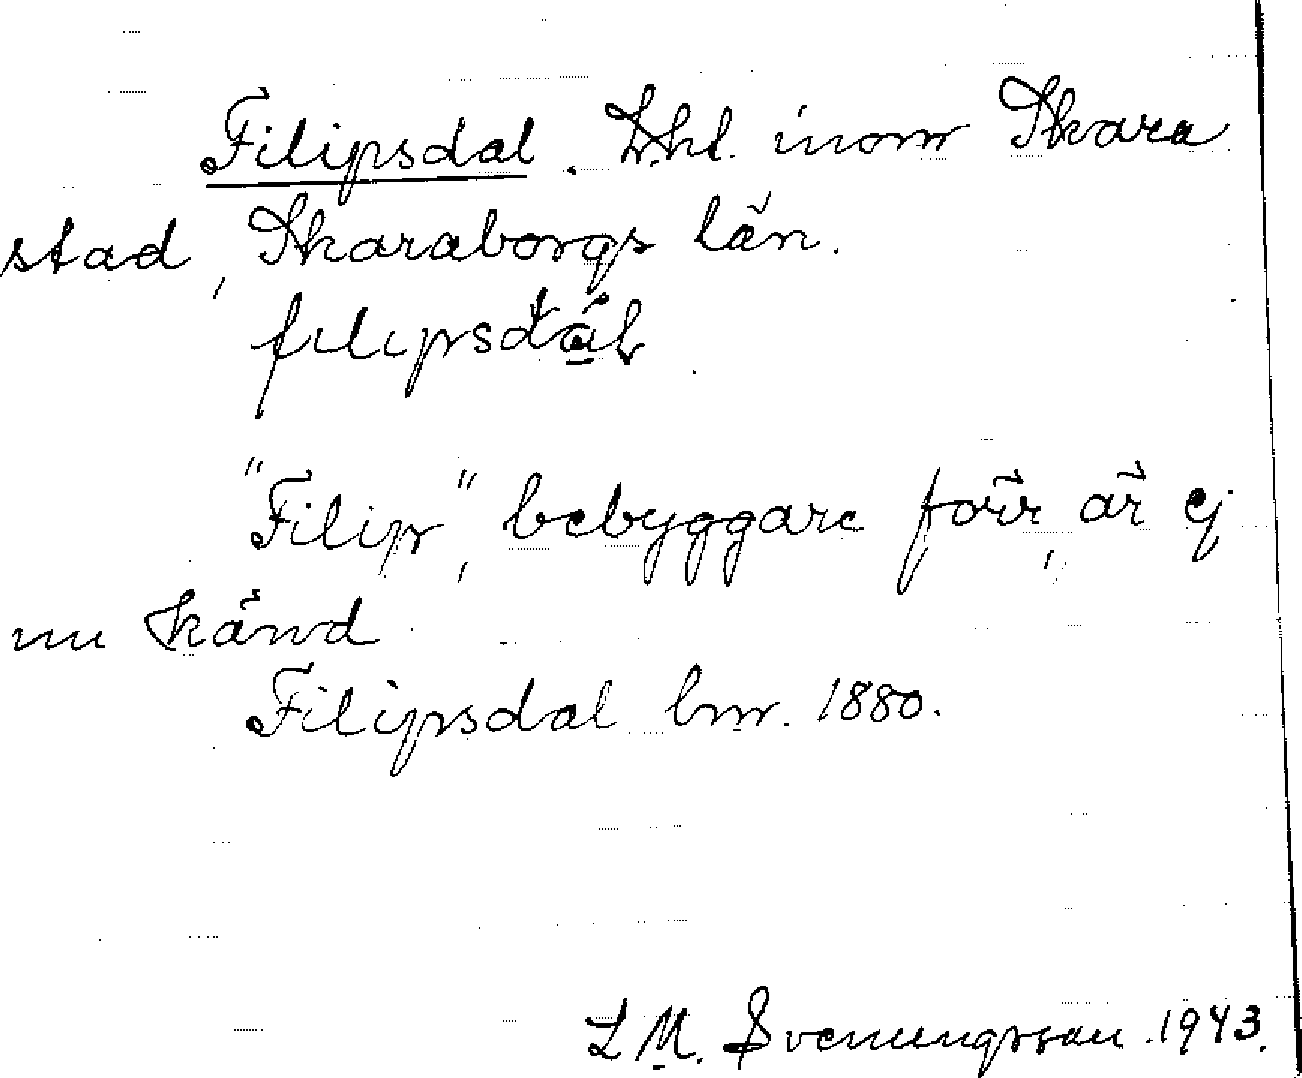 Filipsdal. Lht. inom Skara
stad, Skaraborgs län.
filipsdal
"Filip", bebyggare förr, är ej
nu känd
Filipsdal lm. 1880.
L M. Svenungsson. 1943.